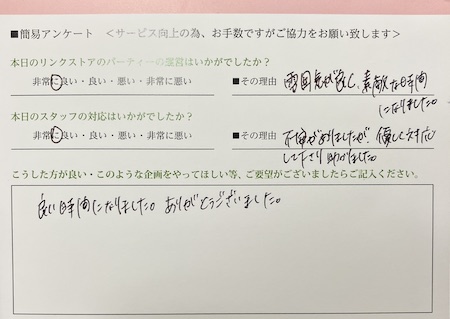 ■簡易アンケート　＜サービス向上の為、お手数ですがご協力をお願い致します＞
本日のリンクストアのパーティーの運営はいかがでしたか？
非常に良い・良い・悪い・非常に悪い　■その理由　雰囲気が良く、素敵な時間
になりました。
本日のスタッフの対応はいかがでしたか？
非常に良い・良い・悪い・非常に悪い　■その理由　不安がありましたが、優しく対応
して下さり助かりました。
こうした方が良い・このような企画をやってほしい等、ご要望がございましたらご記入ください。
良い時間になりました。ありがとうございました。